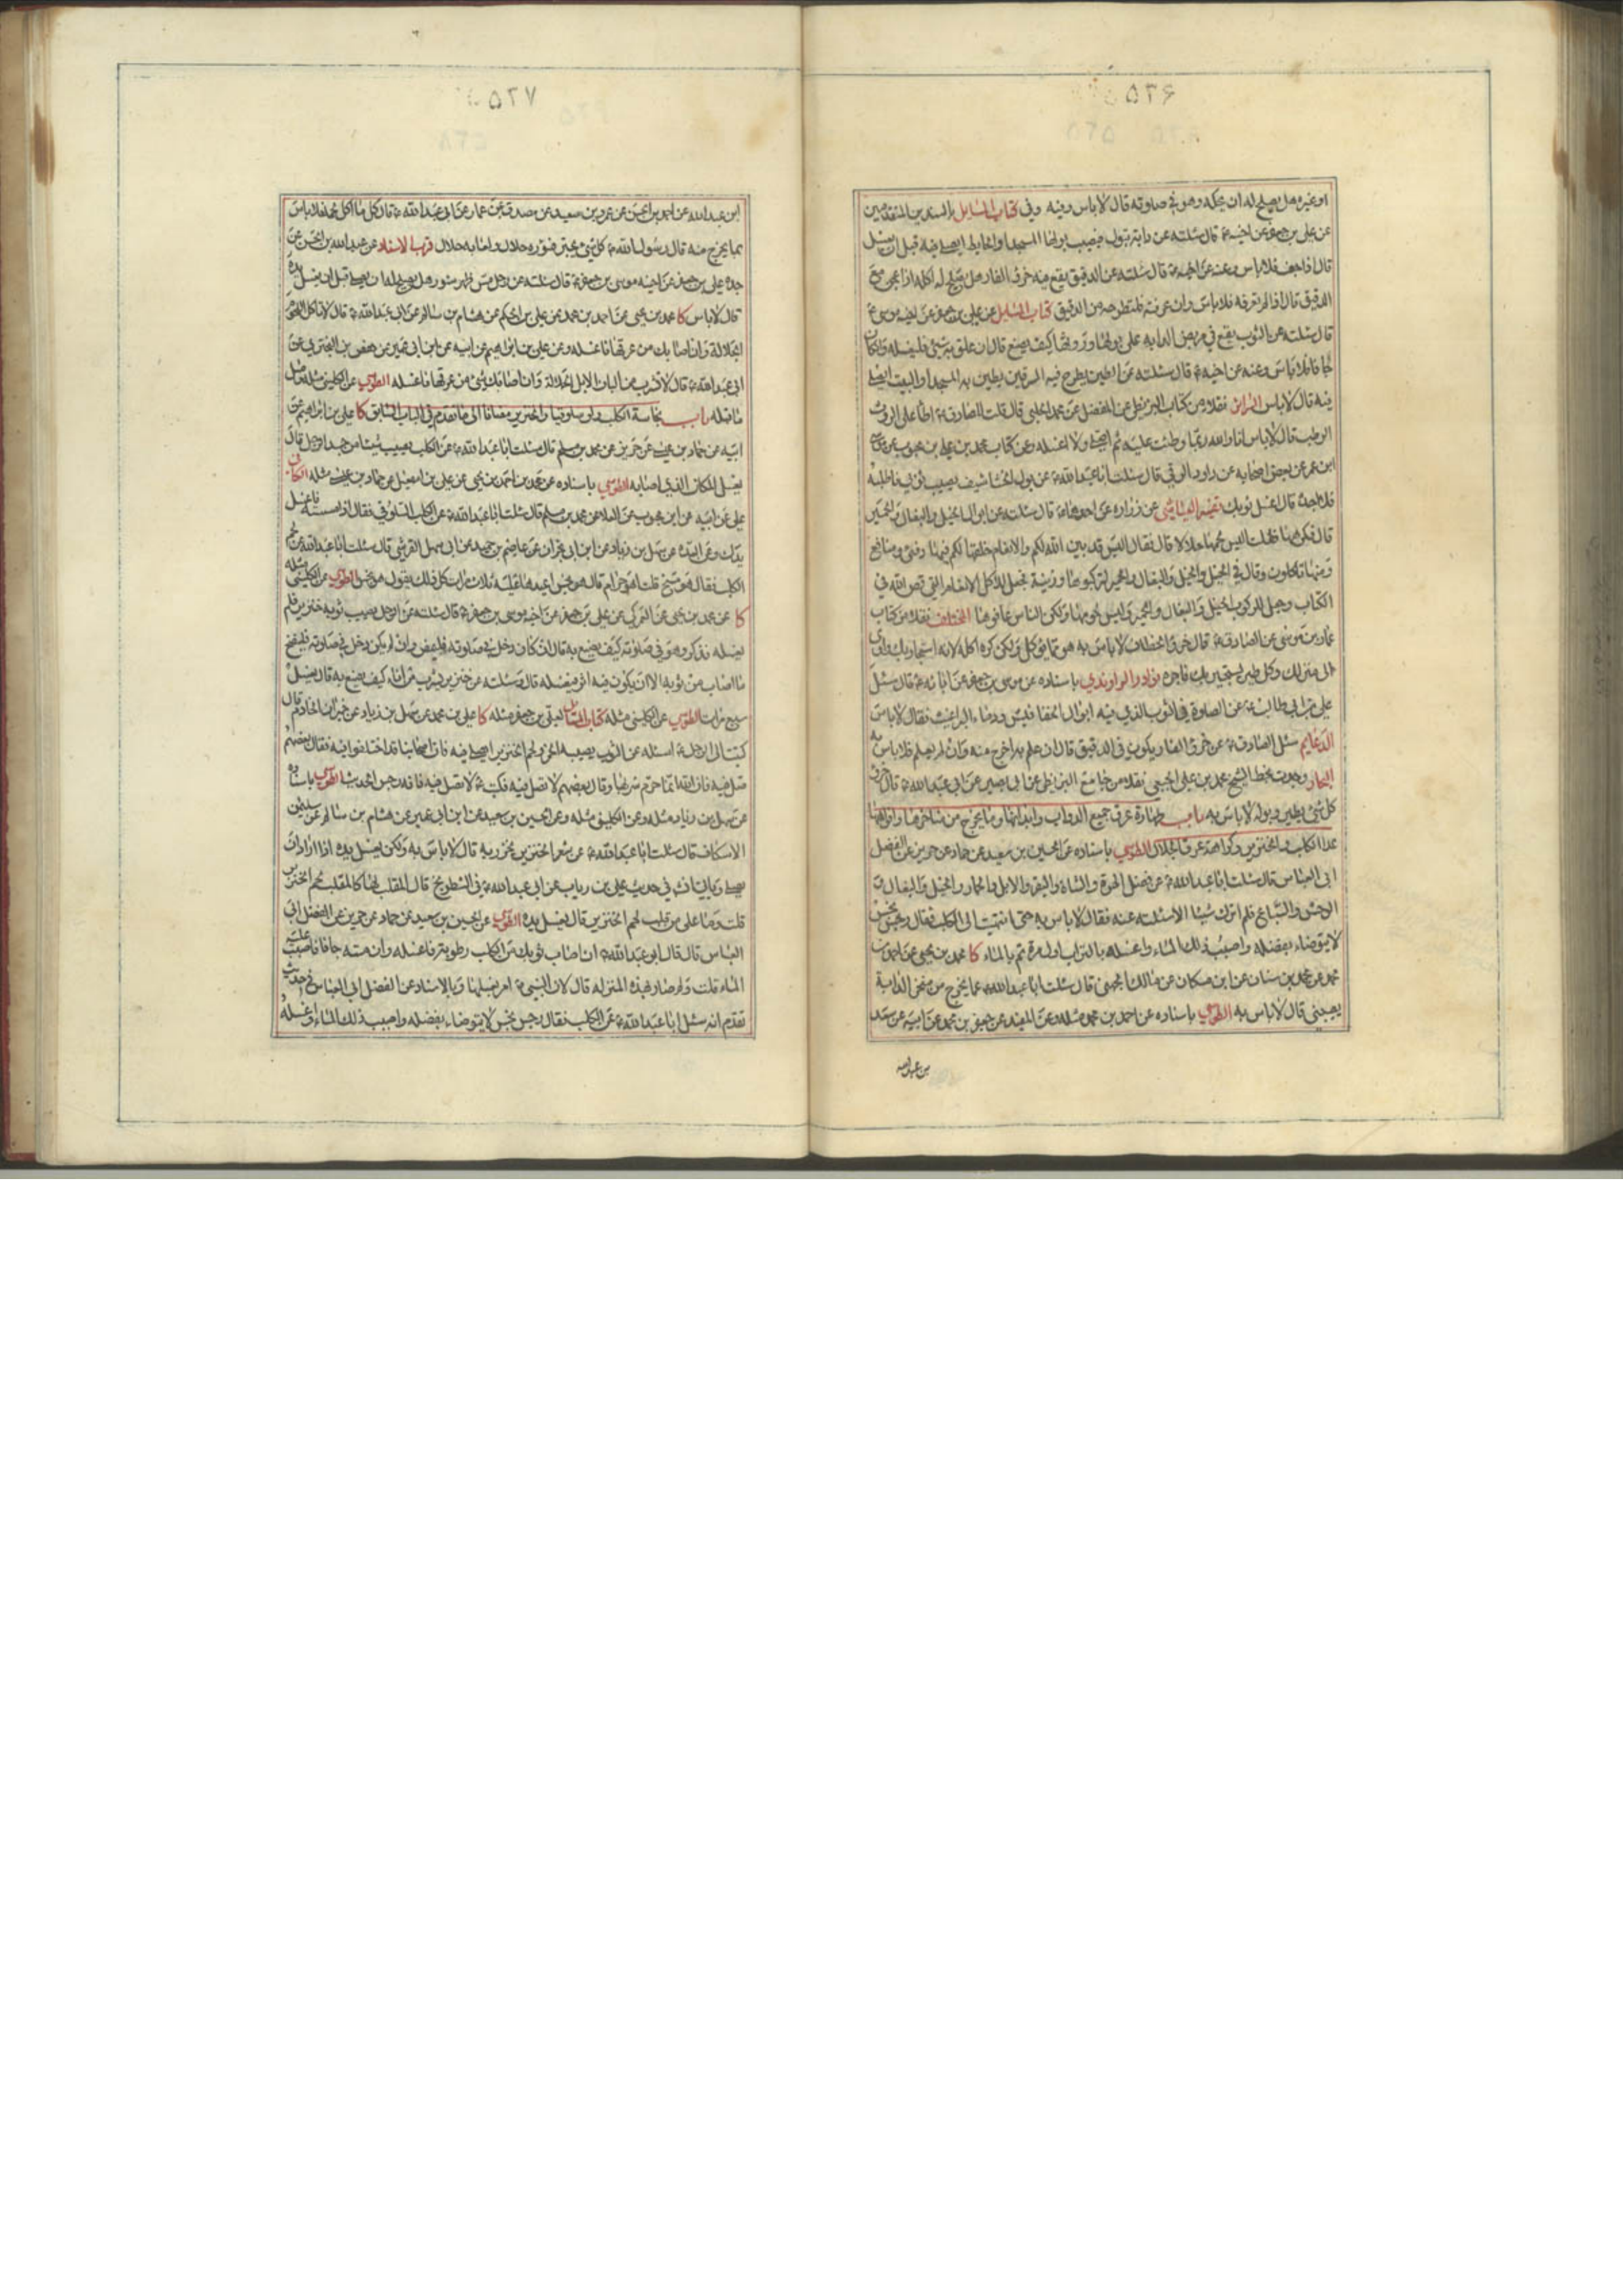 ۵۲۶
او غيره هل يصلح له ان يحكه وهو في صلوته قال لا باس وفيه وفي كتاب المسايل بالسندين المتقدمين
عن علي بن جعفر عن اخيه ع قال سئلته عن دابة تبول فيصيب بولها المسجد او الحايط ايصلى فيه قبل ان يغسل
قال اذا جف فلا باس وعنه عن اخيه ع قال سئلته عن الدقيق يقع فيه خرؤ الفار هل يصلح له اكله اذا عجن مع
الدقيق قال اذا لم تعرفه فلا باس وان عرفته فلتطرحه من الدقيق كتاب المسايل عن علي بن جعفر عن اخيه موسى ع
قال سئلته عن الثوب يقع في مربض الدابه على بولها وروثها كيف يصنع قال ان علق به شيئ فليغسله وان كان
جافا فلا باس وعنه عن اخيه ع قال سئلته عن الطين يطرح فيه السرقين يطين به المسجد او البيت ايصلى
فيه قال لا باس السرائر نقلا من كتاب البزنطي عن المفضل عن محمد الحلبي قال قلت للصادق ع اطأ على الروث
الرطب قال لا باس انا والله ربما وطئت عليه ثم اصلي ولا اغسله وعن كتاب محمد بن علي بن محبوب عن موسى
ابن عمر عن بعض اصحابه عن داود الرقي قال سئلت ابا عبد الله ع عن بول الخشاشيف يصيب ثوبي فاطلبه
فلا اجده قال اغسل ثوبك تفسير العياشي عن زراره عن احدهما ع قال سئلته عن ابوال الخيل والبغال والحمير
قال فكرهها فقلت اليس لحمها حلالا قال فقال اليس قد بين الله لكم والانعام خلقها لكم فيها دفئ ومنافع
ومنها تاكلون وقال في الخيل والخيل والبغال والحمير لتركبوها وزينة فجعل للاكل الانعام التي قص الله في
الكتاب وجعل للركوب الخيل والبغال والحمير وليس لحومها ولكن الناس عافوها المختلف نقلا من كتاب
عمار بن موسى عن الصادق ع قال خرؤ الخطاف لا باس به هو مما يؤكل ولكن كره اكله لانه استجار بك واوى
الى منزلك وكل طير يستجير بك فاجره نوادر الراوندي باسناده عن موسى بن جعفر عن ابائه ع قال سئل
علي بن ابي طالب ع عن الصلوة في الثوب الذي فيه ابوال الخفافيش ودماء البراغيث فقال لا باس
الدعايم سئل الصادق ع عن خرؤ الفار يكون في الدقيق قال ان علم به اخرج منه وان لم يعلم فلا باس به
البحار وجدت بخط الشيخ محمد بن علي الجبعي نقلا من جامع البزنطي عن ابي بصير عن ابي عبد الله ع قال خرؤ
كل شيئ يطير وبوله لا باس به باب طهارة عرق جميع الدواب وابدانها وما يخرج من مناخرها وافواهها
عدا الكلب والخنزير وكراهة عرق الجلال الطوسي باسناده عن الحسين بن سعيد عن حماد عن حريز عن الفضل
ابي العباس قال سئلت ابا عبد الله ع عن فضل الهرة والشاة والبقر والابل والحمار والخيل والبغال و
الوحش والسباع فلم اترك شيئا الا سئلته عنه فقال لا باس به حتى انتهيت الى الكلب فقال رجس نجس
لا يتوضاء بفضله واصبب ذلك الماء واغسله بالتراب اول مرة ثم بالماء كا محمد بن يحيى عن احمد بن
محمد عن محمد بن سنان عن ابن مسكان عن مالك الجهني قال سئلت ابا عبد الله ع عما يخرج من منخر الدابة
يصيبني قال لا باس به الطوسي باسناده عن احمد بن محمد مثله وعن المفيد عن جعفر بن محمد عن ابيه عن سعد
بن عبد الله
۵۲۷
ابن عبد الله عن احمد بن الحسن عن عمرو بن سعيد عن مصدق عن عمار عن ابي عبد الله ع قال كل ما اكل لحمه فلا باس
بما يخرج منه قال رسول الله ص كل شيئ يجتر فسؤره حلال ولعابه حلال قرب الاسناد عن عبد الله بن الحسن عن
جده علي بن جعفر عن اخيه موسى بن جعفر ع قال سئلته عن رجل مس ظهر سنور هل يصلح له ان يصلي قبل ان يغسل يده
قال لا باس كا محمد بن يحيى عن احمد بن محمد عن علي بن الحكم عن هشام بن سالم عن ابي عبد الله ع قال لا تاكل اللحوم
الجلالة وان اصابك من عرقها فاغسله وعن علي بن ابراهيم عن ابيه عن ابن ابي عمير عن حفص بن البختري عن
ابي عبد الله ع قال لا تشرب من البان الابل الجلالة وان اصابك شيئ من عرقها فاغسله الطوسي عن الكليني مثله مثل
ما قبله باب نجاسة الكلب ولو سلوقيا والخنزير مضافا الى ما تقدم في الباب السابق كا علي بن ابراهيم عن
ابيه عن حماد بن عيسى عن حريز عن محمد بن مسلم قال سئلت ابا عبد الله ع عن الكلب يصيب شيئا من جسد الرجل قال
يغسل المكان الذي اصابه الطوسي باسناده عن محمد بن احمد بن يحيى عن علي بن اسمعيل عن حماد بن عيسى مثله الكافي
علي عن ابيه عن ابن محبوب عن العلا عن محمد بن مسلم قال سئلت ابا عبد الله ع عن الكلب السلوقي فقال اذا مسسته فاغسل
يدك وعن العدة عن سهل بن زياد عن ابن ابي نجران عن عاصم بن حميد عن ابي سهل القرشي قال سئلت ابا عبد الله ع عن لحم
الكلب فقال هو مسخ قلت اهو حرام قال هو نجس اعيدها عليه ثلاث مرات كل ذلك يقول هو نجس الطوسي عن الكليني مثله
كا عن محمد بن يحيى عن العمركي عن علي بن جعفر عن اخيه موسى بن جعفر ع قال سئلته عن الرجل يصيب ثوبه خنزير فلم
يغسله فذكر وهو في صلوته كيف يصنع به قال ان كان دخل في صلوته فليمض وان لم يكن دخل في صلوته فلينضح
ما اصاب من ثوبه الا ان يكون فيه اثر فيغسله قال وسئلته عن خنزير يشرب من اناء كيف يصنع به قال يغسل
سبع مرات الطوسي عن الكليني مثله كتاب المسايل لعلي بن جعفر مثله كا علي بن محمد عن سهل بن زياد عن خيران الخادم قال
كتبت الى الرجل ع اسئله عن الثوب يصيبه الخمر ولحم الخنزير ايصلى فيه فان اصحابنا قد اختلفوا فيه فقال بعضهم
صل فيه فان الله انما حرم شربها وقال بعضهم لا تصل فيه فكتب ع لا تصل فيه فانه رجس الحديث الطوسي باسناده
عن سهل بن زياد مثله وعن الكليني مثله وعن الحسين بن سعيد عن ابن ابي عمير عن هشام بن سالم عن سليمان
الاسكاف قال سئلت ابا عبد الله ع عن شعر الخنزير يخرز به قال لا باس به ولكن يغسل يده اذا اراد ان
يصلي وياتي في حديث علي بن رياب عن ابي عبد الله ع في الشطرنج قال المقلب لها كالمقلب لحم الخنزير
قلت وما على من قلب لحم الخنزير قال يغسل يده الطوسي عن الحسين بن سعيد عن حماد عن حريز عن الفضل ابي
العباس قال قال ابو عبد الله ع ان اصاب ثوبك من الكلب رطوبة فاغسله وان مسه جافا فاصبب عليه
الماء قلت ولم صار بهذه المنزله قال لان النبي ص امر بقتلها وبالاسناد عن الفضل ابي العباس في حديث
تقدم انه سئل ابا عبد الله ع عن الكلب فقال رجس نجس لا يتوضاء بفضله واصبب ذلك الماء واغسله